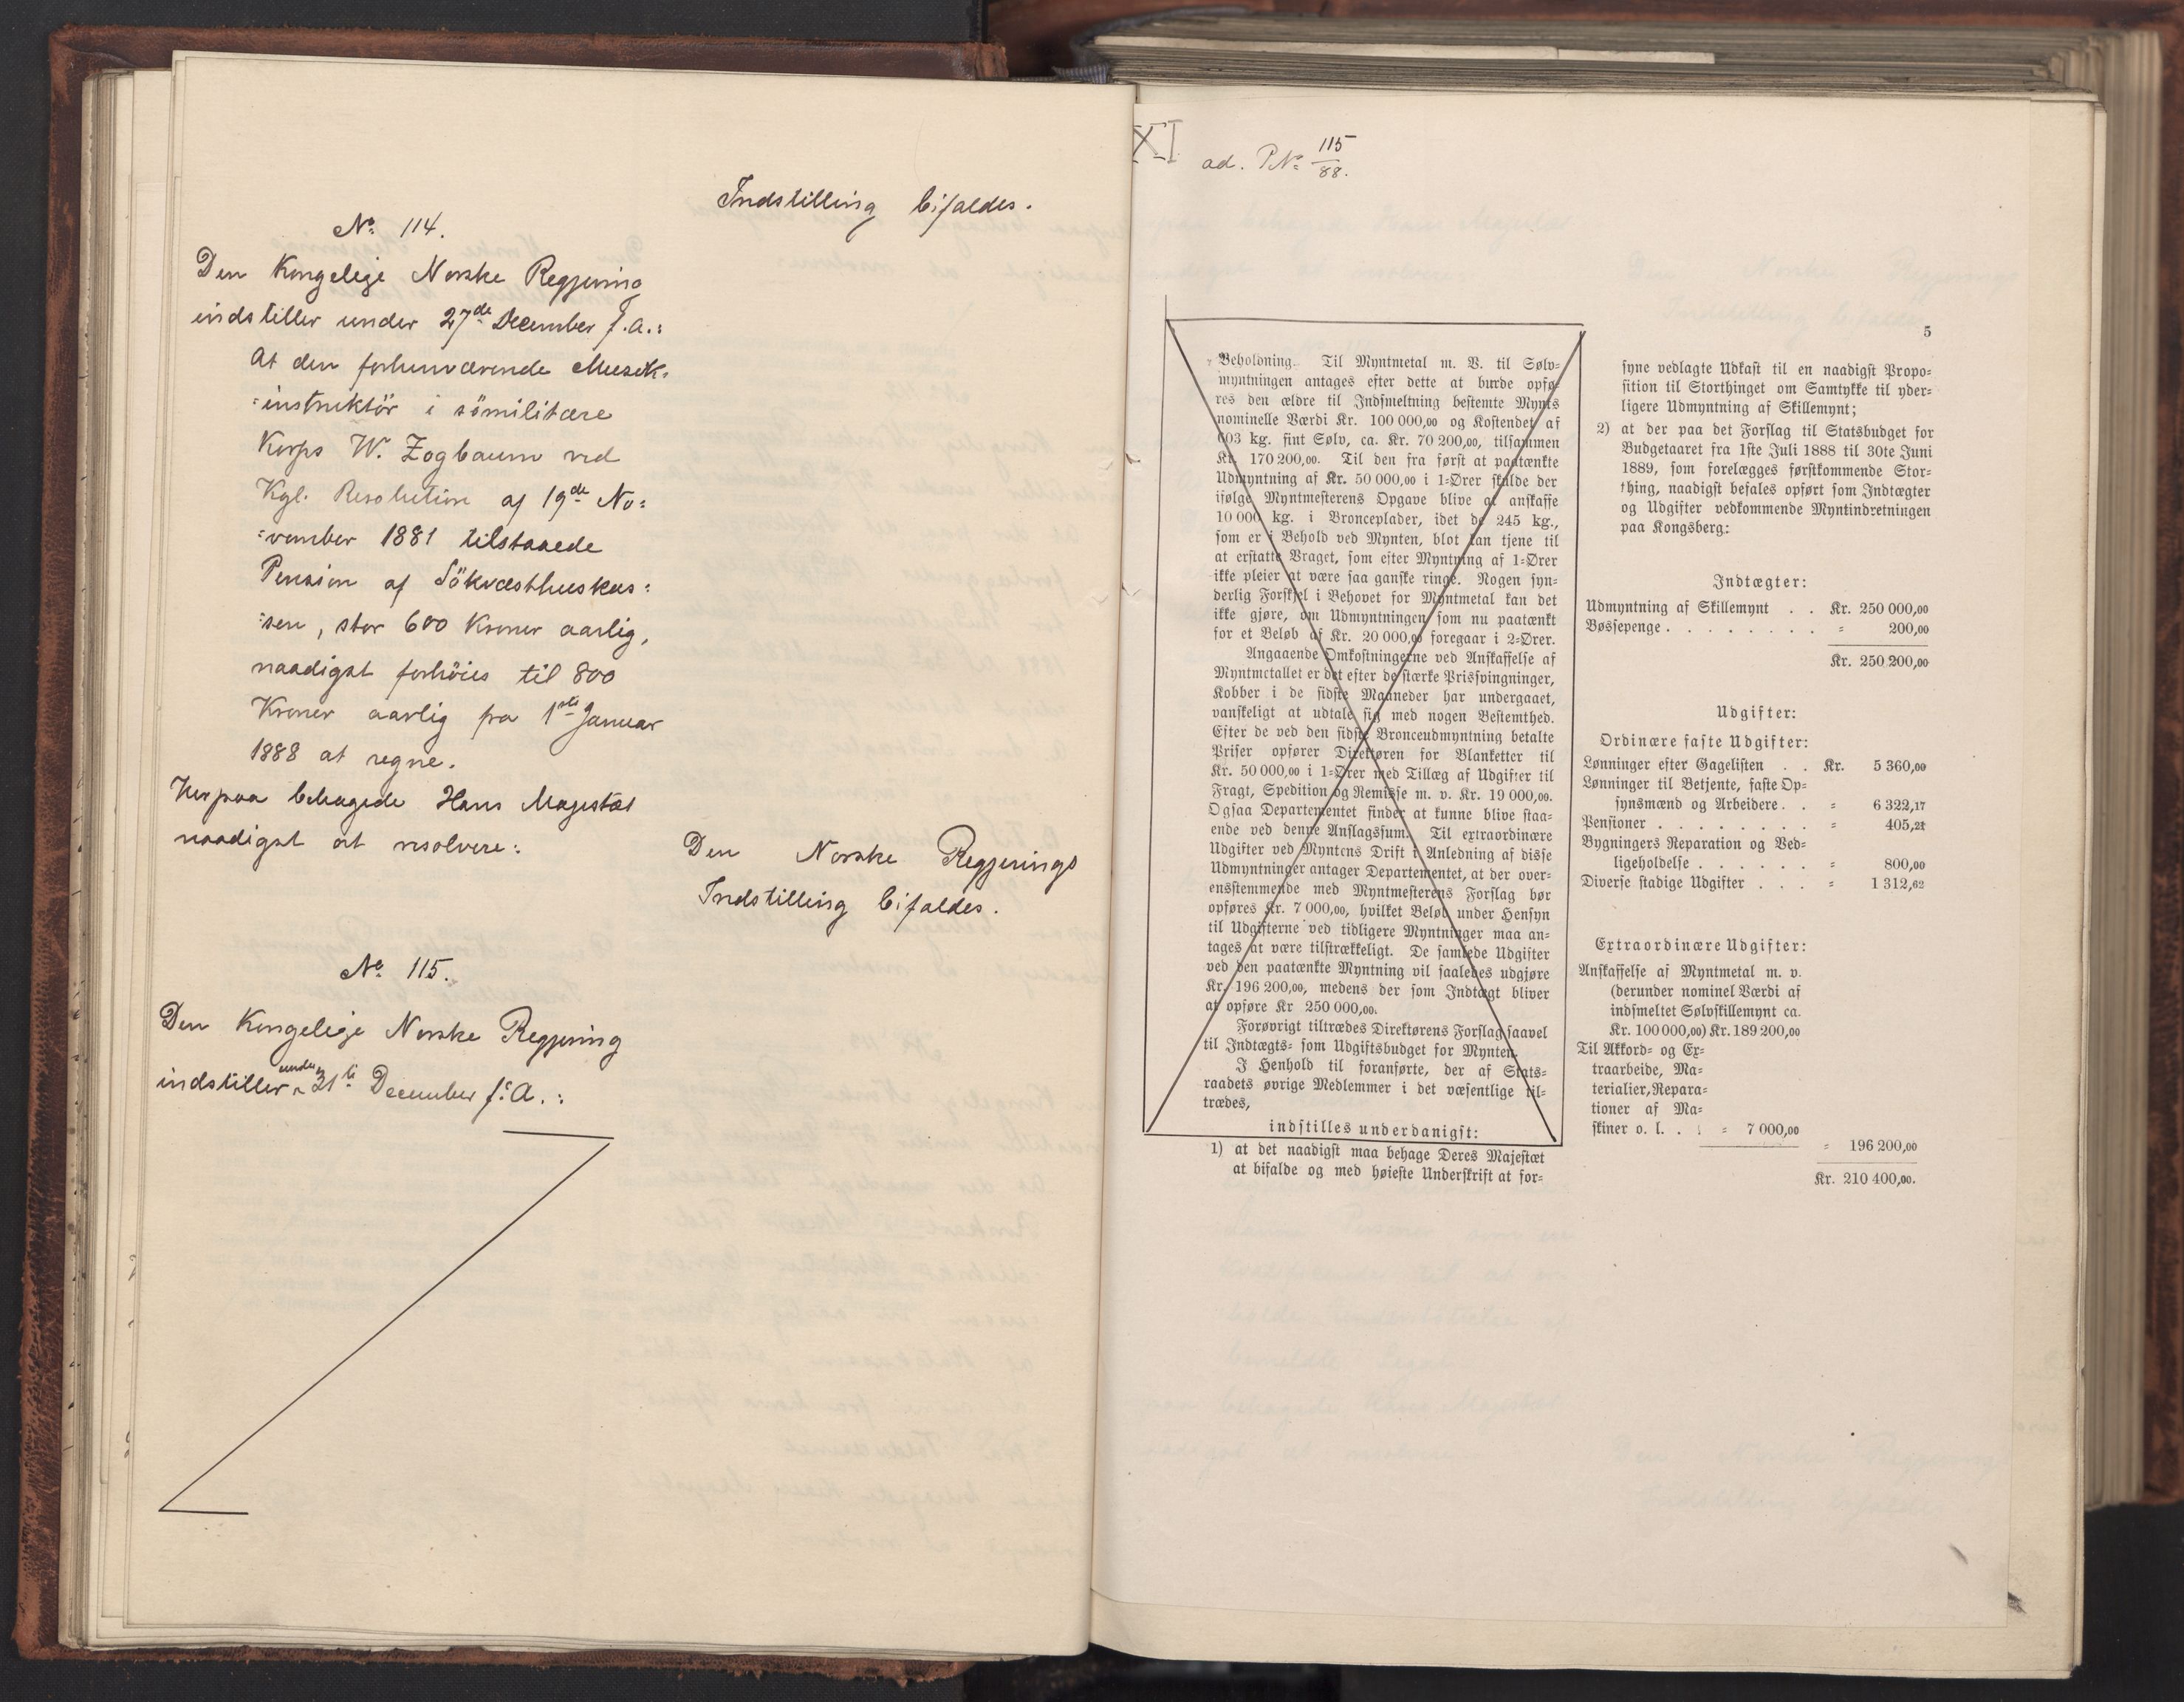 Indstilling bifaldes.
No. 114.
Den Kongelige Norske Regjering
indstiller under 27de December f. A.:
At den forhenværende Musik-
-instruktör i sömilitære
Korps W. Zogbaum ved
Kgl. Resolution af 19de No-
-vember 1881 tilstaaede
Pension af Sökvæsthuskas-
-sen, stor 600 Kroner aarlig,
naadigst forhöies til 800
Kroner aarlig fra 1ste Januar
1888 at regne.
Herpaa behagede Hans Majestæt
naadigst at resolvere:
Den Norske Regjerings
Indstilling bifaldes.
No. 115.
Den Kongelige Norske Regjering
indstiller under 21de December f. A.:
XI
ad. P No. 115/88.
5
Beholdning. Til Myntmetal m. V. til Sølv-
myntningen antages efter dette at burde opfø-
res den ældre til Indsmeltning bestemte Mynts
nominelle Værdi Kr. 100 000,00 og Kostendet af
603 kg. fint Sølv, ca. Kr. 70 200,00, tilsammen
Kr. 170 200,00. Til den fra først at paatænkte
Udmyntning af Kr. 50 000,00 i 1-Ører skulde der
ifølge Myntmesterens Opgave blive at anskaffe
10 000 kg. i Bronceplader, idet de 245 kg.,
som er i Behold ved Mynten, blot kan tjene til
at erstatte Vraget, som efter Myntning af 1-Ører
ikke pleier at være saa ganske ringe. Nogen syn-
derlig Forskjel i Behovet for Myntmetal kan det
ikke gjøre, om Udmyntningen som nu paatænkt
for et Beløb af Kr. 20 000,00 foregaar i 2-Ører.
Angaaende Omkostningerne ved Anskaffelse af
Myntmetallet er det efter de stærke Prissvingninger,
Kobber i de sidste Maaneder har undergaaet,
vanskeligt at udtale sig med nogen Bestemthed.
Efter de ved den sidste Bronceudmyntning betalte
Priser opfører Direktøren for Blanketter til
Kr. 50 000,00 i 1-Ører med Tillæg af Udgifter til
Fragt, Spedition og Remisse m. v. Kr. 19 000,00.
Ogsaa Departementet finder at kunne blive staa-
ende ved denne Anslagssum. Til extraordinære
Udgifter ved Myntens Drift i Anledning af disse
Udmyntninger antager Departementet, at der over-
ensstemmende med Myntmesterens Forslag bør
opføres Kr. 7 000,00, hvilket Beløb under Hensyn
til Udgifterne ved tidligere Myntninger maa an-
tages at være tilstrækkeligt. De samlede Udgifter
ved den paatænkte Myntning vil saaledes udgjøre
Kr. 196 200,00, medens der som Indtægt bliver
at opføre Kr 250 000,00.
Forøvrigt tiltrædes Direktørens Forslag saavel
til Indtægts- som Udgiftsbudget for Mynten.
I Henhold til foranførte, der af Stats-
raadets øvrige Medlemmer i det væsentlige til-
trædes,
indstilles underdanigst:
1) at det naadigst maa behage Deres Majestæt
at bifalde og med høieste Underskrift at for-
syne vedlagte Udkast til en naadigst Propo-
sition til Storthinget om Samtykke til yder-
ligere Udmyntning af Skillemynt;
2) at der paa det Forslag til Statsbudget for
Budgetaaret fra 1ste Juli 1888 til 30te Juni
1889, som forelægges førstkommende Stor-
thing, naadigst befales opført som Indtægter
og Udgifter vedkommende Myntindretningen
paa Kongsberg:
Indtægter:
Udmyntning af Skillemynt . . Kr. 250 000,00
Bøssepenge . . . . . . . . = 200,00
Kr. 250 200,00
Udgifter:
Ordinære faste Udgifter:
Lønninger efter Gagelisten . . Kr. 5 360,00
Lønninger til Betjente, faste Op-
synsmænd og Arbeidere . . = 6 322,17
Pensioner . . . . . . . . = 405,21
Bygningers Reparation og Ved-
ligeholdelse . . . . . . = 800,00
Diverse stadige Udgifter . . . = 1 312,62
Extraordinære Udgifter:
Anskaffelse af Myntmetal m. v.
(derunder nominel Værdi af
indsmeltet Sølvskillemynt ca.
Kr. 100 000,00) Kr. 189 200,00
Til Akkord- og Ex-
traarbeide, Ma-
terialier, Repara-
tioner af Ma-
skiner o. l. . . = 7 000,00
= 196 200,00
Kr. 210 400,00.